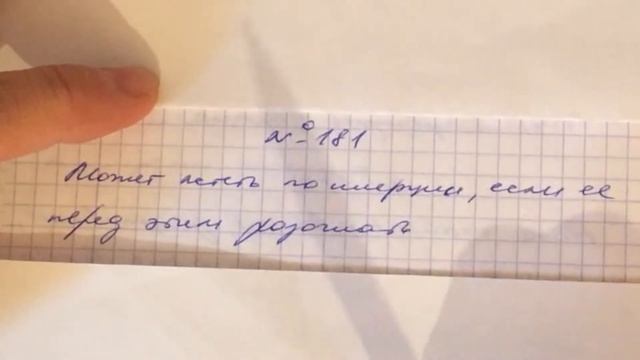 №181
Может лететь по инерции, если ее
перед этим разогнать